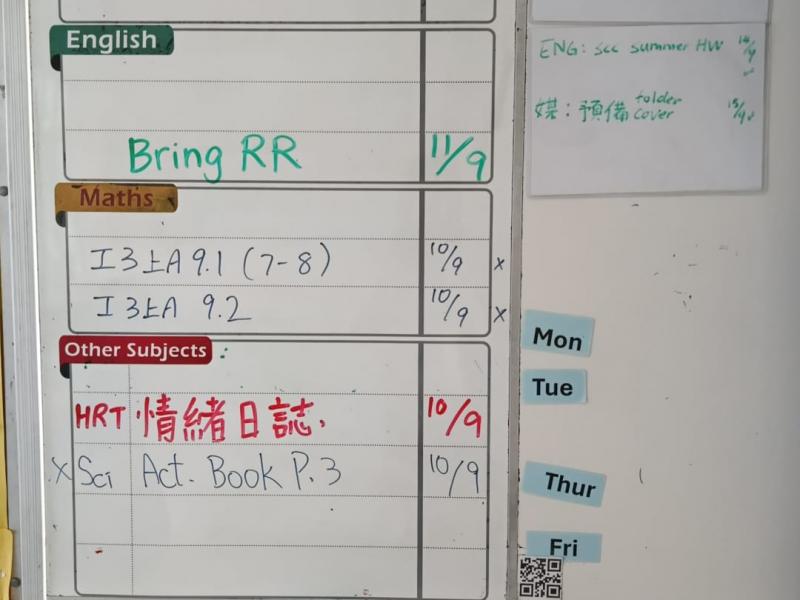 English
Bring RR 11/9
Maths
工3上A 9.1 (7-8) 10/9 x
工3上A 9.2 10/9 x
Other Subjects
HRT 情緒日誌. 10/9
x Sci Act. Book P.3 10/9
ENG: see summer HW 14/9 ✓
媒: 預備 folder cover 15/9 ✓
Mon
Tue
Thur
Fri